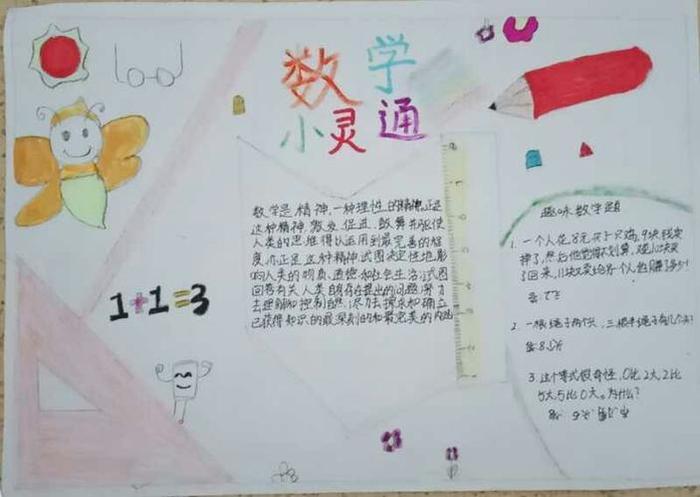 数学
小灵通
1+1=3
数学是精神,一种理性的精神,正是
这种精神,激发,促进,鼓舞并驱使
人类的思维得以运用到最完善的程
度,亦正是这种精神,试图决定性地影
响人类的物质、道德和社会生活;试图
回答有关人类自身存在提出的问题;努力
去理解和控制自然;尽力去探求和确立
已获得知识的最深刻的和最完美的内涵
趣味数学题
1. 一个人花8元买了只鸡,9块钱卖
掉了,然后他觉得不划算,花10块买
了回来,11块又卖给另一个人他赚了多少?
答:
2. 一根绳子两个头,三根半绳子有几个头?
答:8个头
3.这个等式很奇怪,0比2大,2比
5大,5比0大。为什么?